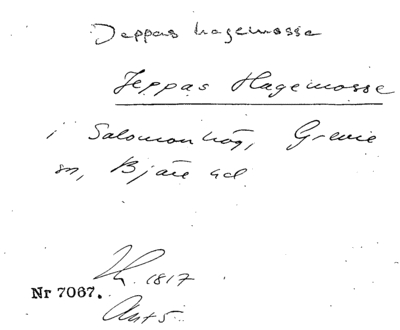 Jeppas hagemosse
Jeppas Hagemosse
i Salomonhög, Grevie
sn, Bjäre hd
Lh. 1817
Nr 7067.
Ant 5